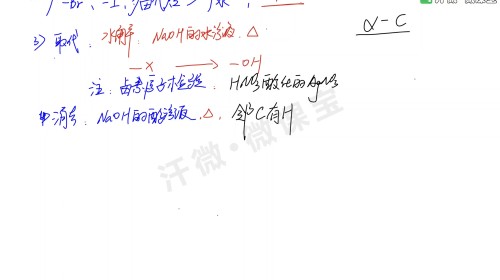 3) 取代: 水解: NaOH的水溶液, △
α-C
-X → -OH
注: 卤素原子检验: HNO₃酸化的AgNO₃
消去: NaOH的醇溶液, △, 邻C有H
汗微·微课宝